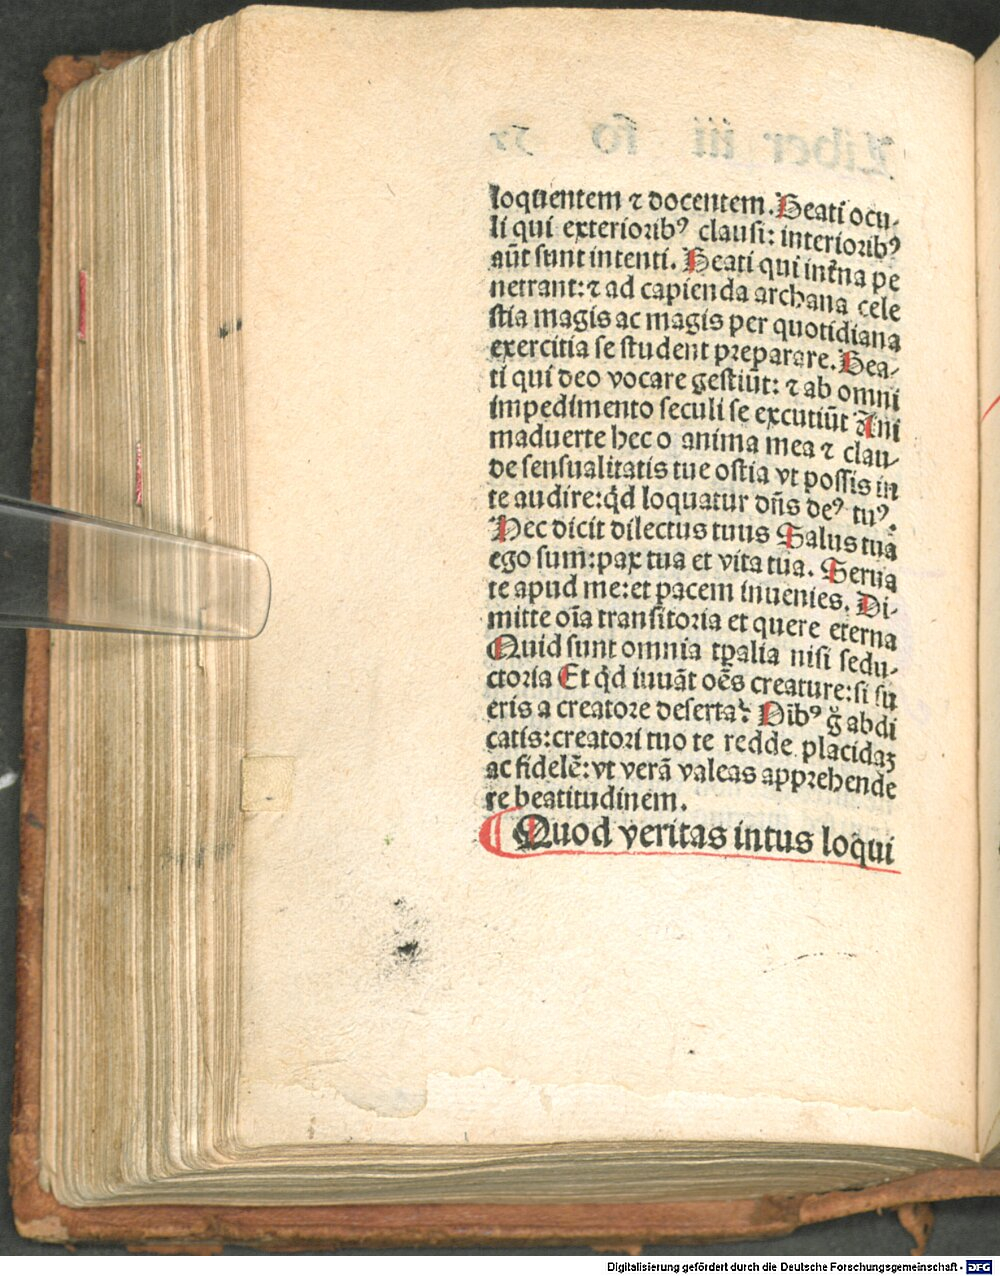 loquentem ⁊ docentem. Beati ocu-
li qui exterioribꝰ clausi: interioribꝰ
aūt sunt intenti. Beati qui int̄na pe
netrant: ⁊ ad capienda archana cele
stia magis ac magis per quotidiana
exercitia se student preparare. Bea-
ti qui deo vocare gestiūt: ⁊ ab omni
impedimento seculi se excutiūt Ani
maduerte hec o anima mea ⁊ clau-
de sensualitatis tue ostia vt possis in
te audire: qd̄ loquatur dn̄s deꝰ tuꝰ.
Hec dicit dilectus tuus Salus tua
ego sum: pax tua et vita tua. Serua
te apud me: et pacem inuenies. Di-
mitte oīa transitoria et quere eterna
Quid sunt omnia tꝑalia nisi sedu-
ctoria Et qd̄ iuuāt oēs creature: si fu
eris a creatore deserta? Nibꝰ g̃ abdi
catis: creatori tuo te redde placidaꝫ
ac fidelē: vt verā valeas apprehende
re beatitudinem.
Quod veritas intus loqui
Digitalisierung gefördert durch die Deutsche Forschungsgemeinschaft - DFG